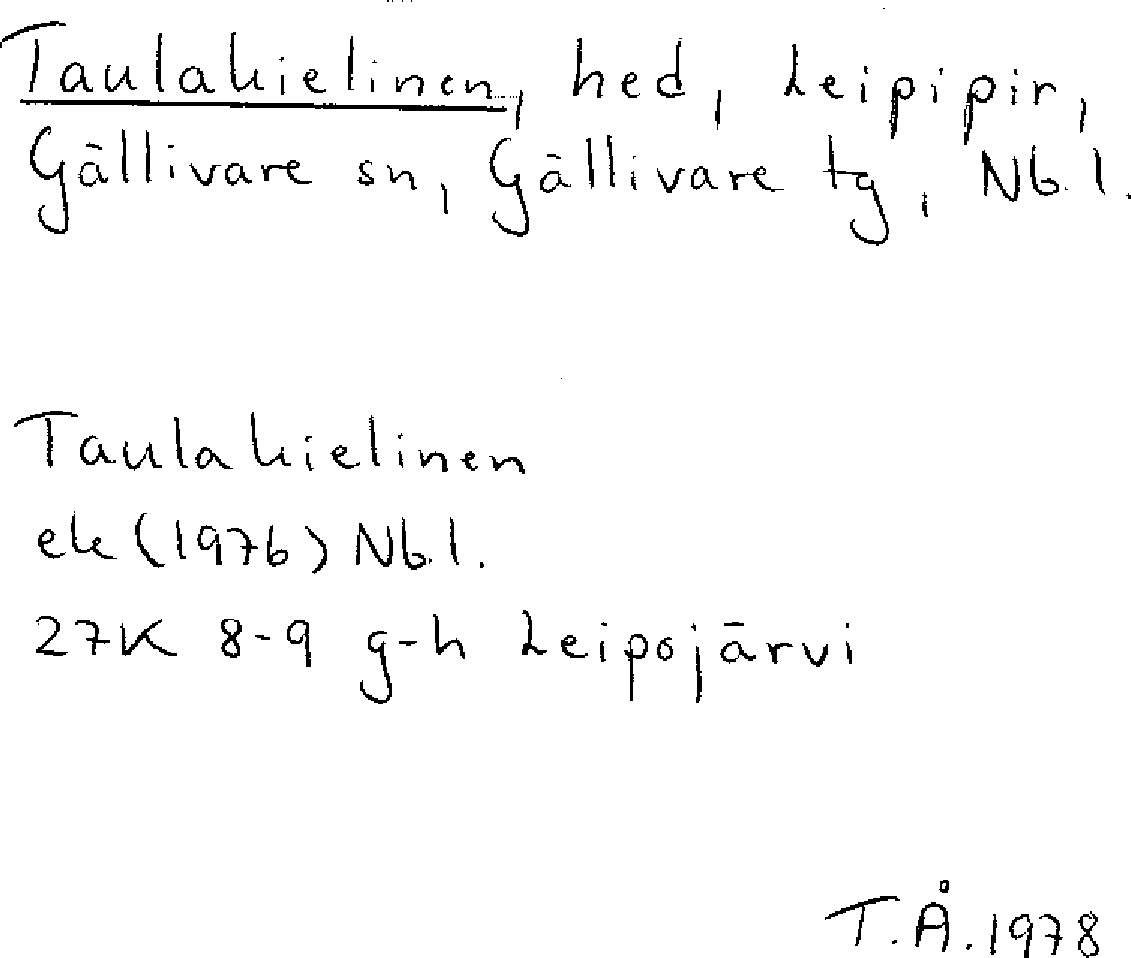 Taulakielinen, hed, Leipipir,
Gällivare sn, Gällivare tg, Nb.l.
Taulakielinen
ek (1976) Nb.l.
27K 8-9 g-h Leipojärvi
T.Å.1978